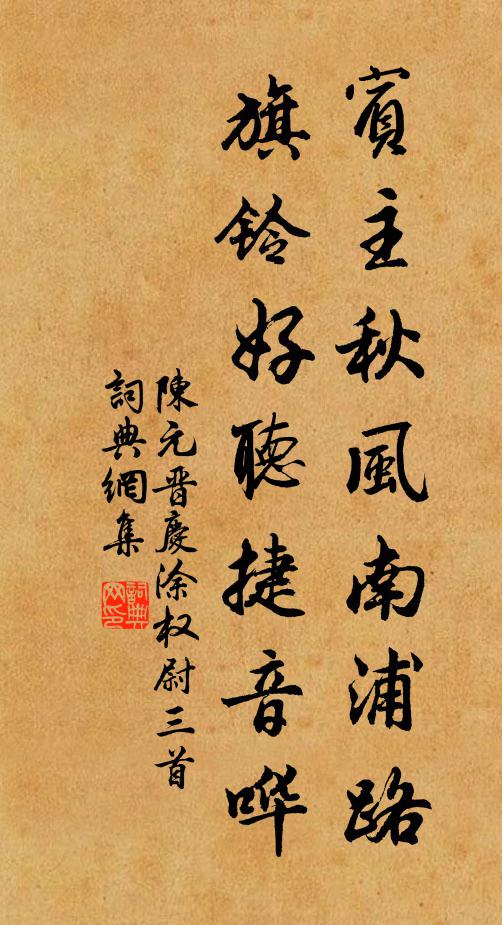 賓主秋風南浦路
旗鈴好聽捷音哗
陳元晋慶涂权尉三首
詞典網集
詞典网印